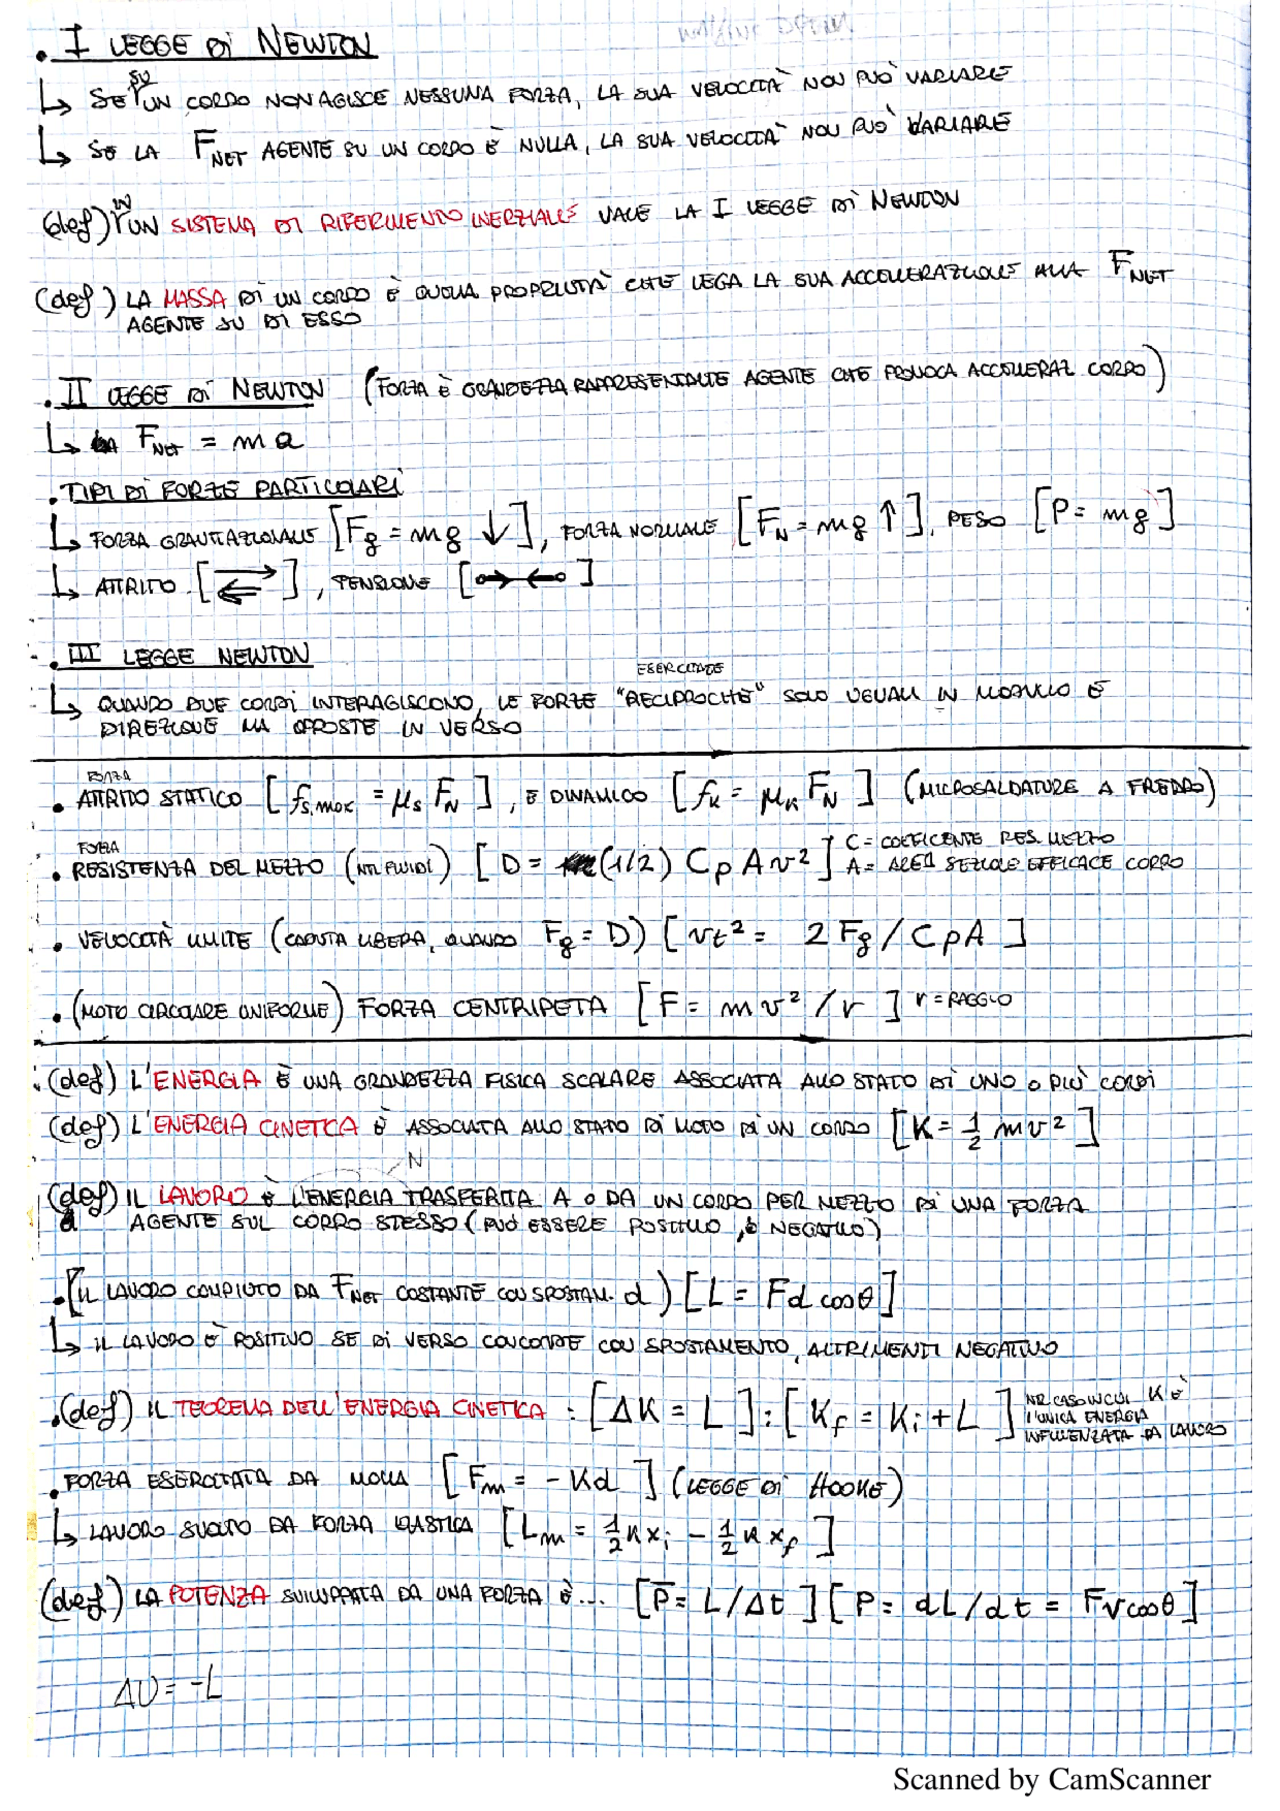 . I LEGGE DI NEWTON
↳ SE SU UN CORPO NON AGISCE NESSUNA FORZA, LA SUA VELOCITÀ NON PUÒ VARIARE
↳ SE LA FNET AGENTE SU UN CORPO È NULLA, LA SUA VELOCITÀ NON PUÒ VARIARE
(def) IN UN SISTEMA DI RIFERIMENTO INERZIALE VALE LA I LEGGE DI NEWTON
(def) LA MASSA DI UN CORPO È QUELLA PROPRIETÀ CHE LEGA LA SUA ACCELERAZIONE ALLA FNET
AGENTE SU DI ESSO
. II LEGGE DI NEWTON (FORZA È GRANDEZZA RAPPRESENTANTE AGENTE CHE PROVOCA ACCELERAZ CORPO)
↳ FNET = ma
. TIPI DI FORZE PARTICOLARI
↳ FORZA GRAVITAZIONALE [Fg = mg ↓], FORZA NORMALE [FN = mg ↑], PESO [P = mg]
↳ ATTRITO [⇄], TENSIONE [o→ ←o]
. III LEGGE NEWTON
↳ QUANDO DUE CORPI INTERAGISCONO, LE FORZE ESERCITATE "RECIPROCHE" SONO UGUALI IN MODULO E
DIREZIONE MA OPPOSTE IN VERSO
• FORZA ATTRITO STATICO [fs,max = μs FN], E DINAMICO [fk = μk FN] (MICROSALDATURE A FREDDO)
• FORZA RESISTENZA DEL MEZZO (NEI FLUIDI) [D = (1/2) CρAv²] C = COEFFICENTE RES. MEZZO
A = AREA SEZIONE EFFICACE CORPO
• VELOCITÀ LIMITE (CADUTA LIBERA, QUANDO Fg = D) [vt² = 2Fg / CρA]
• (MOTO CIRCOLARE UNIFORME) FORZA CENTRIPETA [F = mv²/r] r = RAGGIO
. (def) L'ENERGIA È UNA GRANDEZZA FISICA SCALARE ASSOCIATA ALLO STATO DI UNO O PIÙ CORPI
(def) L'ENERGIA CINETICA È ASSOCIATA ALLO STATO DI MOTO DI UN CORPO [K = 1/2 mv²]
N
(def) IL LAVORO È L'ENERGIA TRASFERITA A O DA UN CORPO PER MEZZO DI UNA FORZA
AGENTE SUL CORPO STESSO (PUÒ ESSERE POSITIVO, O NEGATIVO)
. [IL LAVORO COMPIUTO DA FNET COSTANTE CON SPOSTAM. d) [L = Fd cosθ]
↳ IL LAVORO È POSITIVO SE DI VERSO CONCORDE CON SPOSTAMENTO, ALTRIMENTI NEGATIVO
. (def) IL TEOREMA DELL'ENERGIA CINETICA : [ΔK = L] : [Kf = Ki + L] NEL CASO IN CUI K È
L'UNICA ENERGIA
INFLUENZATA DA LAVORO
. FORZA ESERCITATA DA MOLLA [Fm = -Kd] (LEGGE DI HOOKE)
↳ LAVORO SVOLTO DA FORZA ELASTICA [Lm = 1/2 K xi - 1/2 K xf]
(def) LA POTENZA SVILUPPATA DA UNA FORZA È... [P̄ = L/Δt] [P = dL/dt = Fv cosθ]
ΔU = -L
Scanned by CamScanner